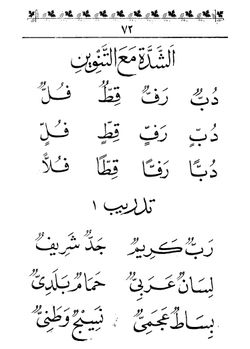 ٧٢
اَلشَّدَّةُ مَعَ التَّنْوِينِ
دُبٌّ رَفٌّ قِطٌّ فُلٌّ
دُبٍّ رَفٍّ قِطٍّ فُلٍّ
دُبًّا رَفًّا قِطًّا فُلًّا
تدريب ١
رَبٌّ كَرِيمٌ جَدٌّ شَرِيفٌ
لِسَانٌ عَرَبِيٌّ حَمَامٌ بَلَدِيٌّ
بِسَاطٌ عَجَمِيٌّ نَسِيجٌ وَطَنِيٌّ